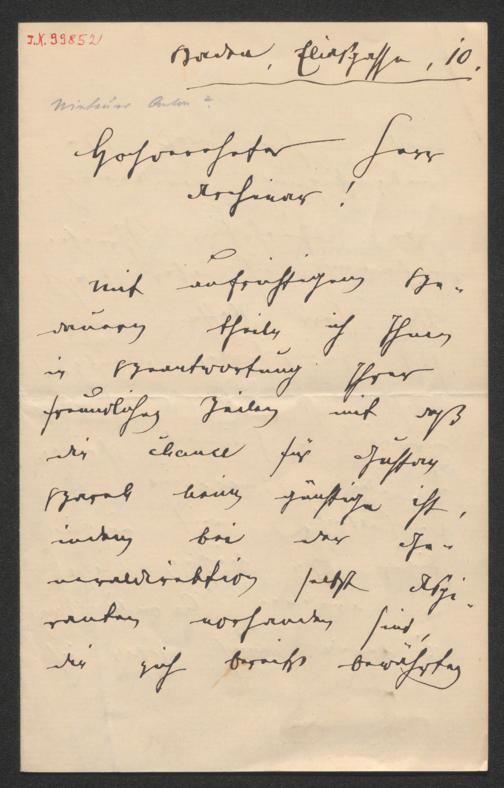 I.N. 99852
Baden, Eliasgasse, 10.
Anton ?
Hochverehrter Herr
Archivar!
Mit aufrichtigem Be-
dauern theile ich Ihnen
in Beantwortung Ihrer
freundlichen Zeilen mit daß
die Chance für Gustav
keine günstige ist,
indem bei der Ge-
neraldirektion selbst Aspi-
ranten vorhanden sind,
die sich bereits bewährten